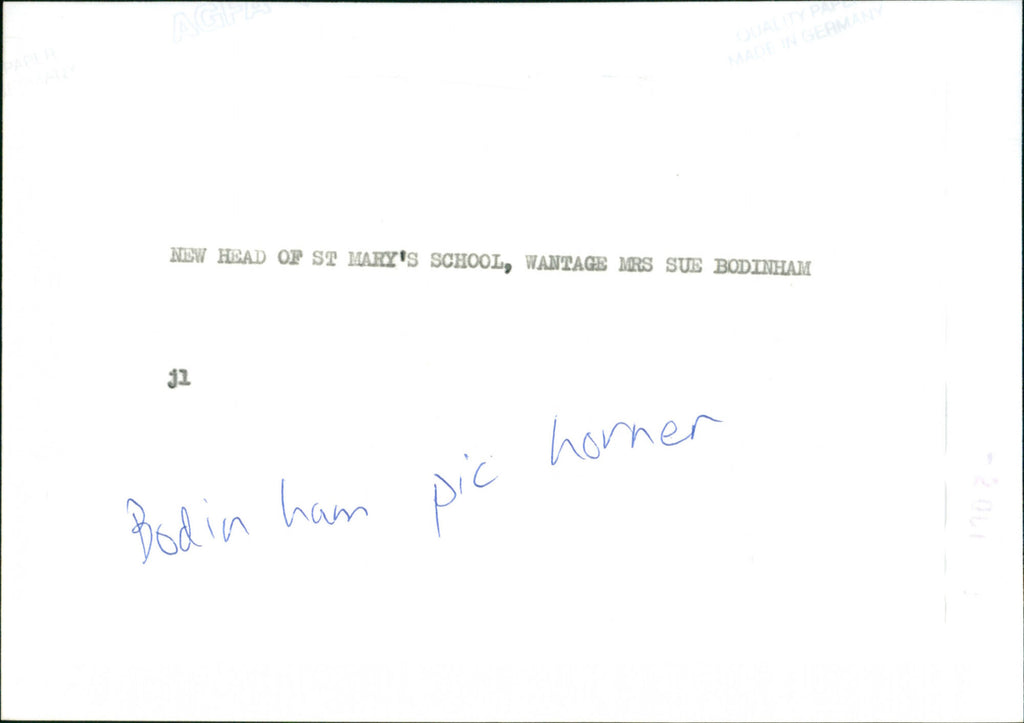 AGFA
QUALITY PAPER
MADE IN GERMANY
NEW HEAD OF ST MARY'S SCHOOL, WANTAGE MRS SUE BODINHAM
jl
Bodinham pic horner